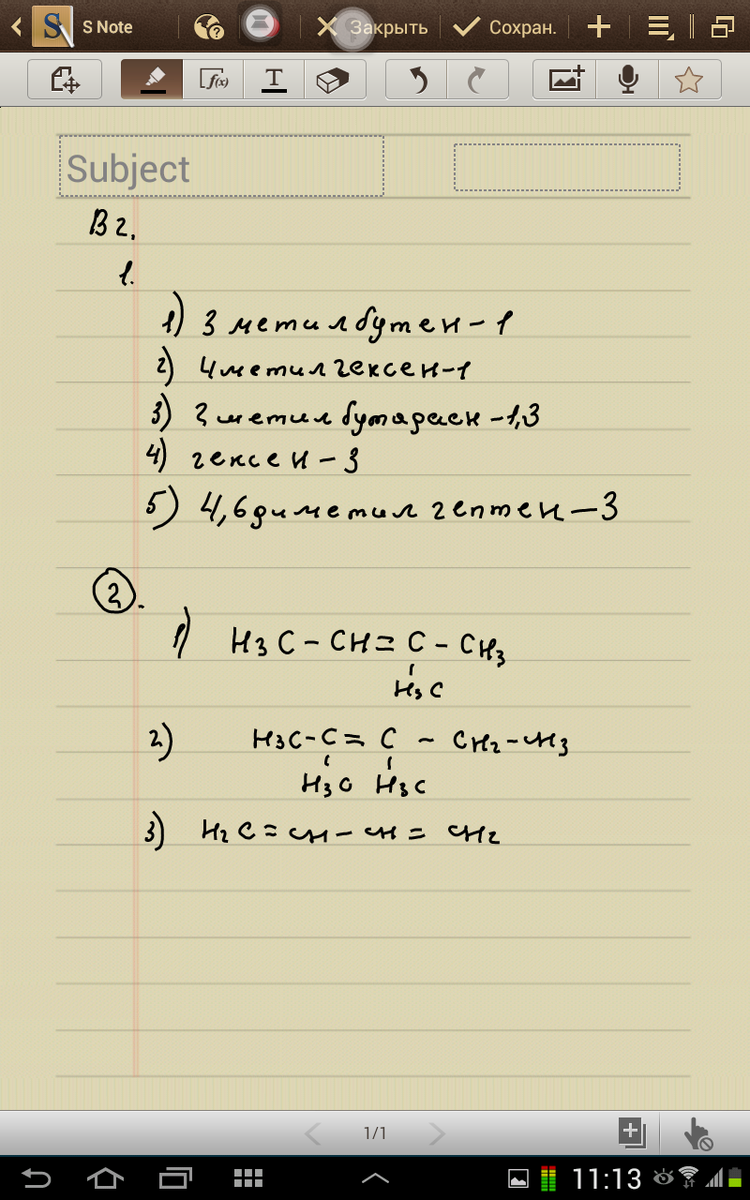 S Note
Закрыть
Сохран.
f(x)
T
Subject
В 2.
1.
1) 3 метилбутен-1
2) 4 метилгексен-1
3) 2 метилбутадиен-1,3
4) гексен-3
5) 4,6 диметилгептен-3
2.
1) H3C-CH=C-CH3
H3C
2) H3C-C=C-CH2-CH3
H3C H3C
3) H2C=CH-CH=CH2
1/1
11:13